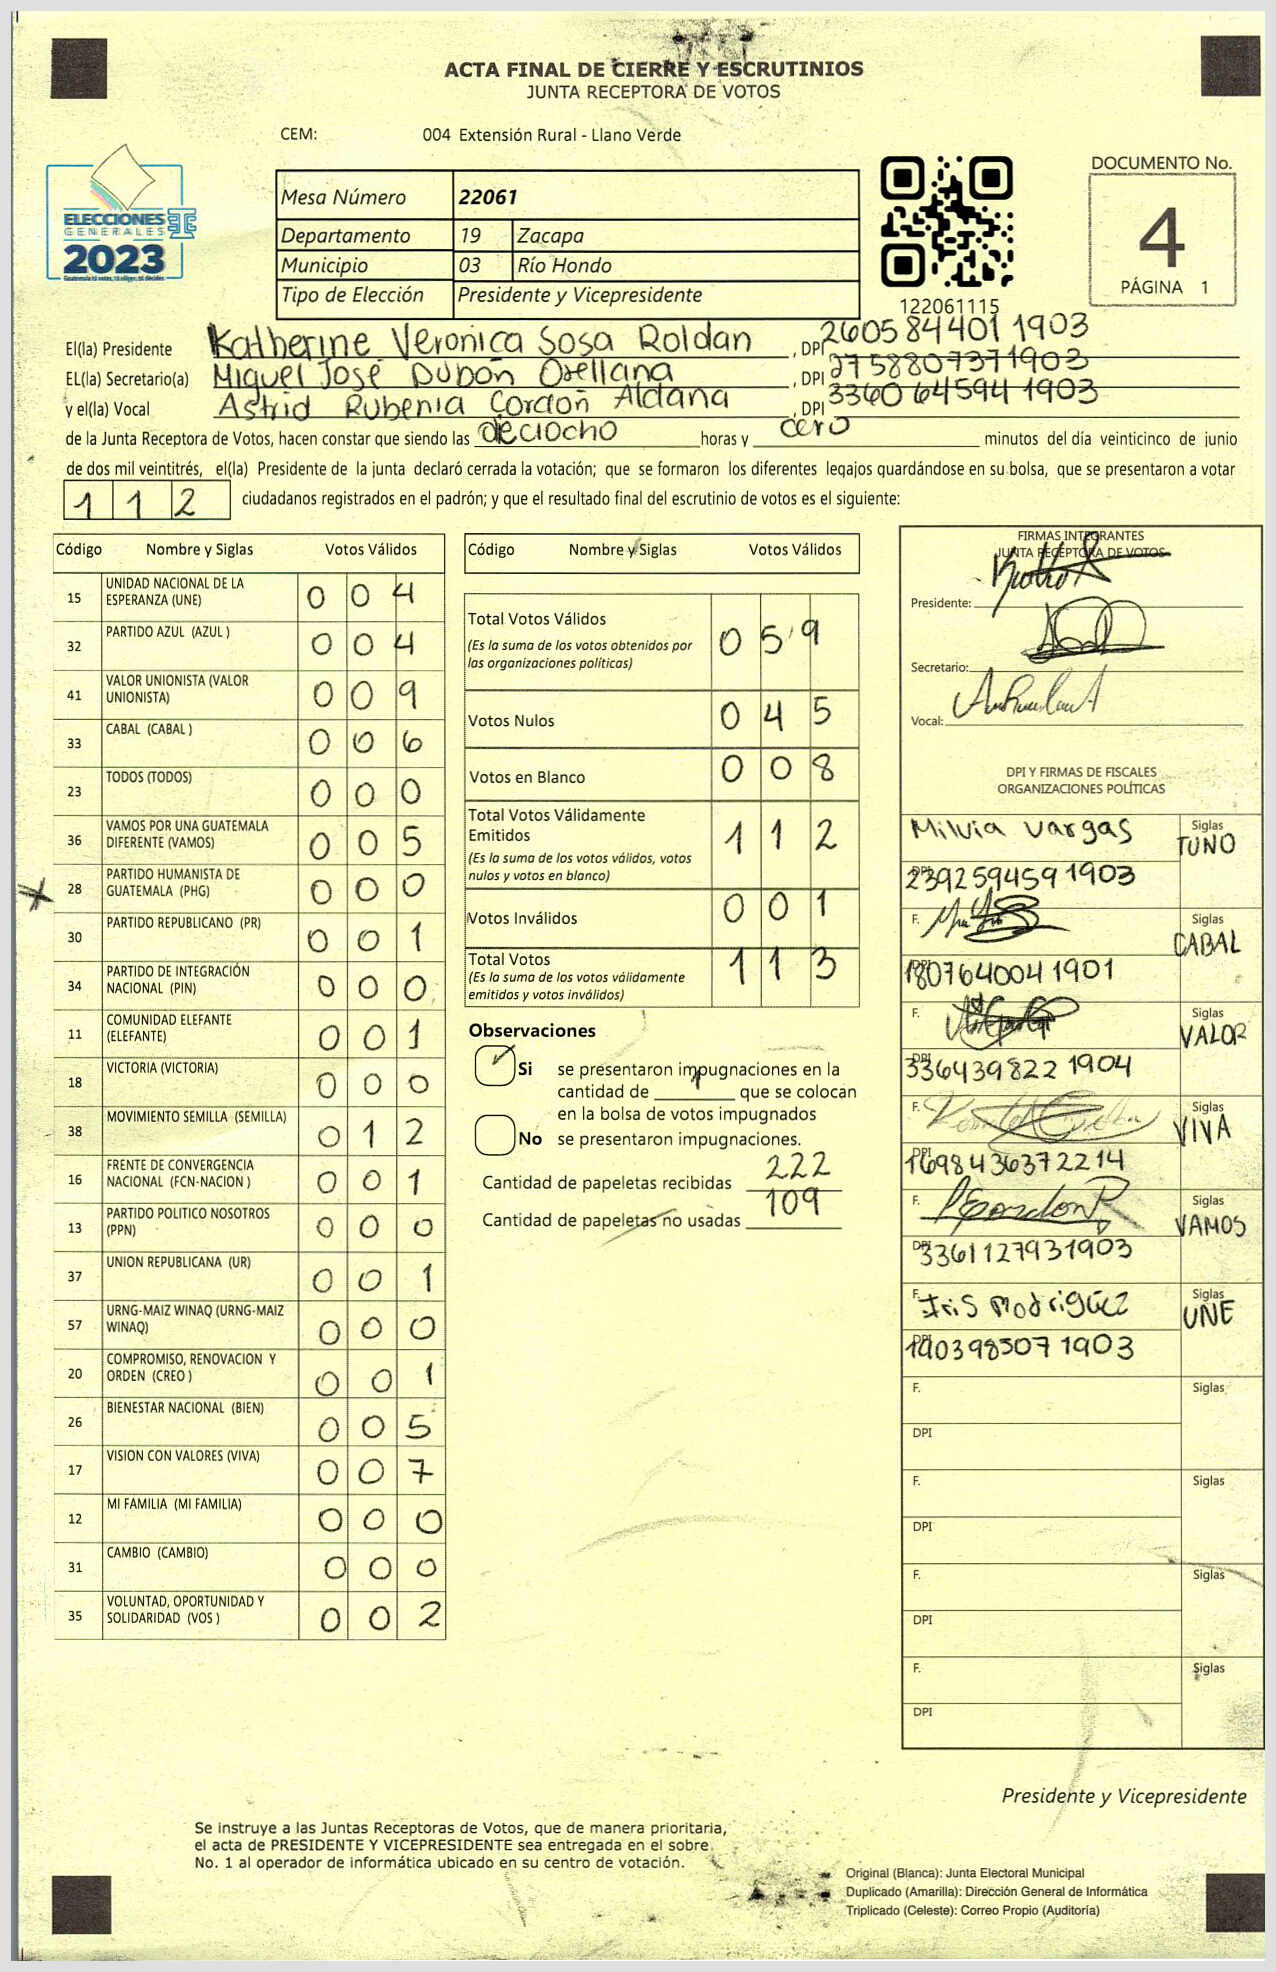 ACTA FINAL DE CIERRE Y ESCRUTINIOS
JUNTA RECEPTORA DE VOTOS
CEM: 004 Extensión Rural - Llano Verde
ELECCIONES
GENERALES
2023
Mesa Número 22061
Departamento 19 Zacapa
Municipio 03 Río Hondo
Tipo de Elección Presidente y Vicepresidente
122061115
DOCUMENTO No.
4
PÁGINA 1
El(la) Presidente Katherine Veronica Sosa Roldan , DPI 2605 84401 1903
EL(la) Secretario(a) Miguel José Dubón Orellana , DPI 2758807371903
y el(la) Vocal Astrid Rubenia Cordón Aldana , DPI 3360 64594 1903
de la Junta Receptora de Votos, hacen constar que siendo las deciocho horas y cero minutos del día veinticinco de junio
de dos mil veintitrés, el(la) Presidente de la junta declaró cerrada la votación; que se formaron los diferentes legajos quardándose en su bolsa, que se presentaron a votar
1 1 2 ciudadanos registrados en el padrón; y que el resultado final del escrutinio de votos es el siguiente:
Código Nombre y Siglas Votos Válidos
15 UNIDAD NACIONAL DE LA ESPERANZA (UNE) 0 0 4
32 PARTIDO AZUL (AZUL ) 0 0 4
41 VALOR UNIONISTA (VALOR UNIONISTA) 0 0 9
33 CABAL (CABAL ) 0 0 6
23 TODOS (TODOS) 0 0 0
36 VAMOS POR UNA GUATEMALA DIFERENTE (VAMOS) 0 0 5
28 PARTIDO HUMANISTA DE GUATEMALA (PHG) 0 0 0
30 PARTIDO REPUBLICANO (PR) 0 0 1
34 PARTIDO DE INTEGRACIÓN NACIONAL (PIN) 0 0 0
11 COMUNIDAD ELEFANTE (ELEFANTE) 0 0 1
18 VICTORIA (VICTORIA) 0 0 0
38 MOVIMIENTO SEMILLA (SEMILLA) 0 1 2
16 FRENTE DE CONVERGENCIA NACIONAL (FCN-NACION ) 0 0 1
13 PARTIDO POLITICO NOSOTROS (PPN) 0 0 0
37 UNION REPUBLICANA (UR) 0 0 1
57 URNG-MAIZ WINAQ (URNG-MAIZ WINAQ) 0 0 0
20 COMPROMISO, RENOVACION Y ORDEN (CREO ) 0 0 1
26 BIENESTAR NACIONAL (BIEN) 0 0 5
17 VISION CON VALORES (VIVA) 0 0 7
12 MI FAMILIA (MI FAMILIA) 0 0 0
31 CAMBIO (CAMBIO) 0 0 0
35 VOLUNTAD, OPORTUNIDAD Y SOLIDARIDAD (VOS ) 0 0 2
Código Nombre y Siglas Votos Válidos
Total Votos Válidos 0 5 9
(Es la suma de los votos obtenidos por
las organizaciones políticas)
Votos Nulos 0 4 5
Votos en Blanco 0 0 8
Total Votos Válidamente
Emitidos 1 1 2
(Es la suma de los votos válidos, votos
nulos y votos en blanco)
Votos Inválidos 0 0 1
Total Votos 1 1 3
(Es la suma de los votos válidamente
emitidos y votos inválidos)
Observaciones
Si se presentaron impugnaciones en la
cantidad de 1 que se colocan
en la bolsa de votos impugnados
No se presentaron impugnaciones.
Cantidad de papeletas recibidas 222
Cantidad de papeletas no usadas 109
FIRMAS INTEGRANTES
JUNTA RECEPTORA DE VOTOS
Presidente:
Secretario:
Vocal:
DPI Y FIRMAS DE FISCALES
ORGANIZACIONES POLÍTICAS
Milvia Vargas Siglas TUNO
DPI 239259459 1903
F. Siglas CABAL
DPI 180764004 1901
F. Siglas VALOR
DPI 336439822 1904
F. Siglas VIVA
DPI 1698436372214
F. Siglas VAMOS
DPI 3361127931903
F. Iris Siglas UNE
DPI 190398507 1903
F. Siglas
DPI
F. Siglas
DPI
F. Siglas
DPI
F. Siglas
DPI
Presidente y Vicepresidente
Se instruye a las Juntas Receptoras de Votos, que de manera prioritaria,
el acta de PRESIDENTE Y VICEPRESIDENTE sea entregada en el sobre
No. 1 al operador de informática ubicado en su centro de votación.
Original (Blanca): Junta Electoral Municipal
Duplicado (Amarilla): Dirección General de Informática
Triplicado (Celeste): Correo Propio (Auditoría)